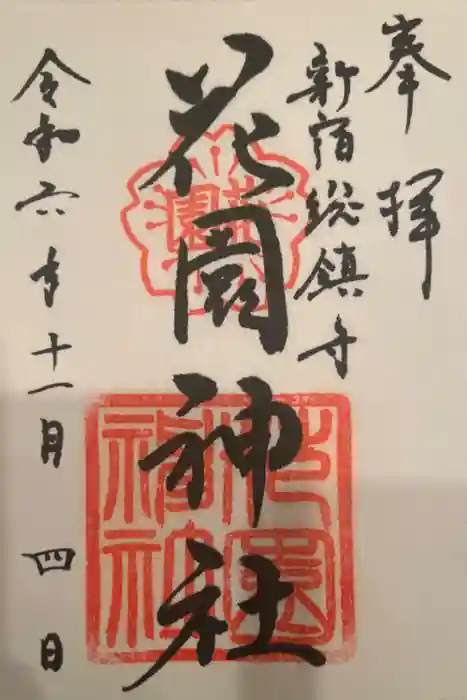 奉拝
新宿総鎮守
花園神社
令和六年十一月四日
花園神社